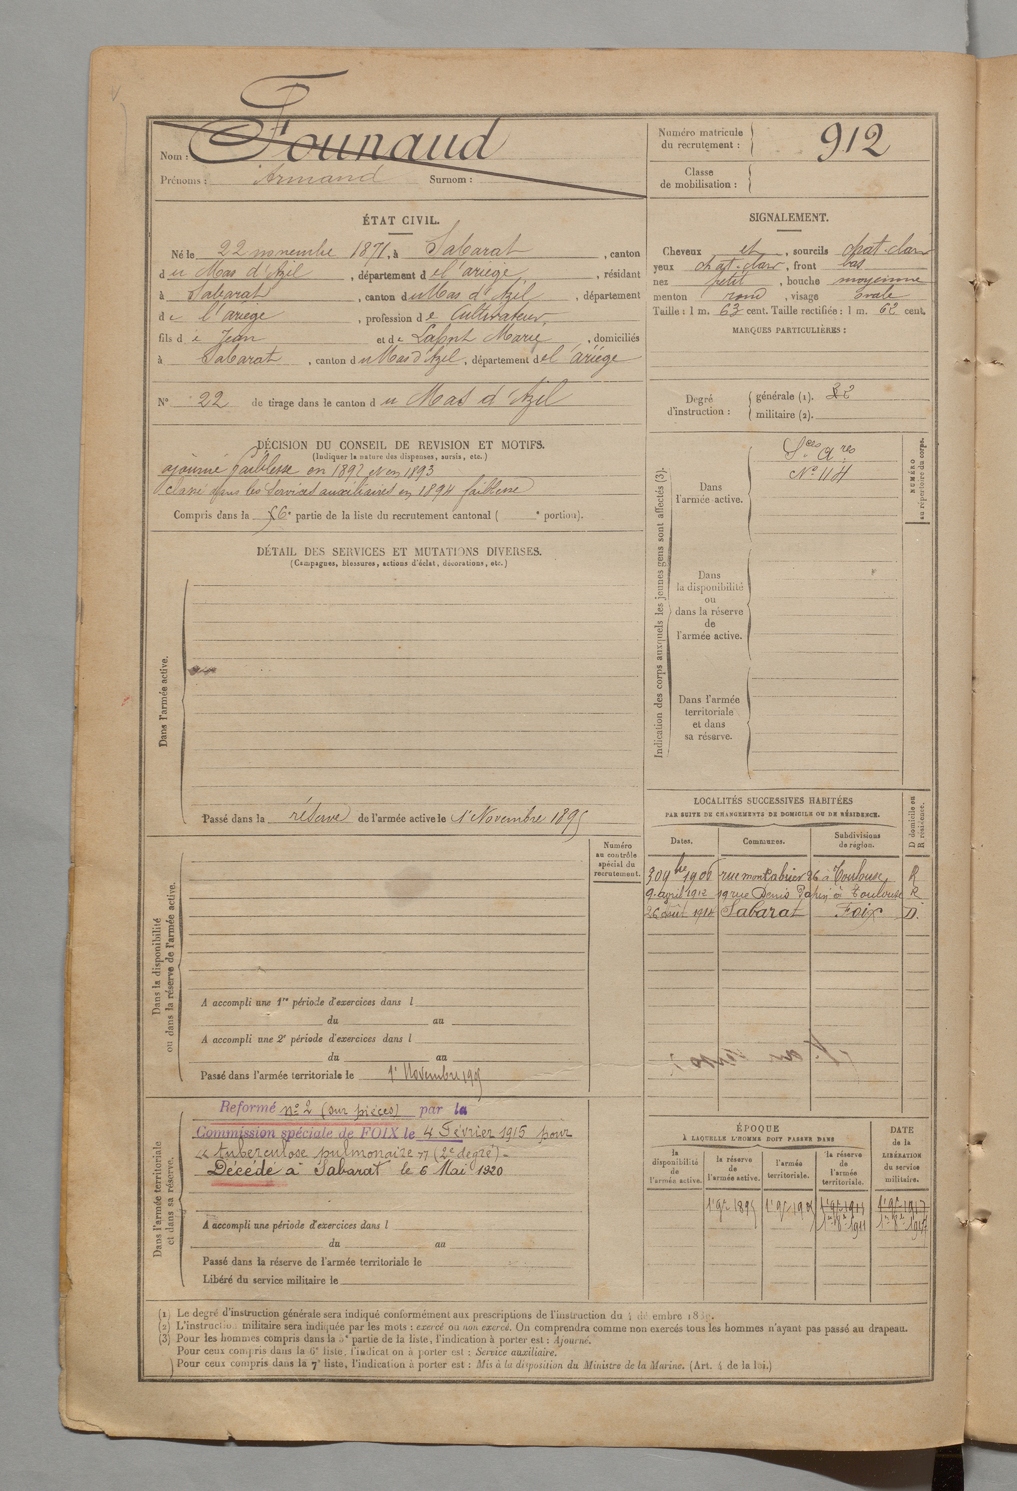 Nom : Founaud
Prénoms : Armand Surnom :
Numéro matricule du recrutement : 912
Classe de mobilisation :
ÉTAT CIVIL.
Né le 22 novembre 1871, à Sabarat, canton
du Mas d'Azil, département de l'ariège, résidant
à Sabarat, canton du Mas d'Azil, département
de l'ariège, profession de Cultivateur,
fils de Jean et de Lafont Marie, domiciliés
à Sabarat, canton du Mas d'Azil, département de l'ariège
N° 22 de tirage dans le canton du Mas d'Azil
SIGNALEMENT.
Cheveux et, sourcils chat. clair
yeux chat. clair, front bas
nez petit, bouche moyenne
menton rond, visage ovale
Taille : 1 m. 63 cent. Taille rectifiée : 1 m. 62 cent.
MARQUES PARTICULIÈRES :
Degré d'instruction :
générale (1).
militaire (2).
DÉCISION DU CONSEIL DE REVISION ET MOTIFS.
(Indiquer la nature des dispenses, sursis, etc.)
ajourné faiblesse en 1892 et en 1893
classé dans les services auxiliaires en 1894 faiblesse
Compris dans la 6e partie de la liste du recrutement cantonal ( e portion).
DÉTAIL DES SERVICES ET MUTATIONS DIVERSES.
(Campagnes, blessures, actions d'éclat, décorations, etc.)
Dans l'armée active.
Passé dans la réserve de l'armée active le 1er Novembre 1895
Indication des corps auxquels les jeunes gens sont affectés (3).
Dans l'armée active.
Sces ares
N° 114
NUMÉRO au répertoire du corps.
Dans la disponibilité ou dans la réserve de l'armée active.
Dans l'armée territoriale et dans sa réserve.
LOCALITÉS SUCCESSIVES HABITÉES
PAR SUITE DE CHANGEMENTS DE DOMICILE OU DE RÉSIDENCE.
Dates. Communes. Subdivisions de région. D domicile ou R résidence.
rue montcabrier 26 à Toulouse, R
9 avril 1912 19 rue Denis Papin à Toulouse R
26 août 1914 Sabarat Foix D.
Numéro au contrôle spécial du recrutement.
Dans la disponibilité ou dans la réserve de l'armée active.
A accompli une 1re période d'exercices dans l
du au
A accompli une 2e période d'exercices dans l
du au
Passé dans l'armée territoriale le 1er Novembre 1905
Dans l'armée territoriale et dans sa réserve.
Reformé n° 2 (sur pièces) par la
Commission spéciale de FOIX le 4 Février 1915 pour
"tuberculose pulmonaire" (2e degré)-
Décédé à Sabarat le 6 Mai 1920
A accompli une période d'exercices dans l
du au
Passé dans la réserve de l'armée territoriale le
Libéré du service militaire le
ÉPOQUE
À LAQUELLE L'HOMME DOIT PASSER DANS
la disponibilité de l'armée active.
la réserve de l'armée active.
l'armée territoriale.
la réserve de l'armée territoriale.
DATE de la LIBÉRATION du service militaire.
1er 9bre 1895 1er 9bre 1905 1er 9bre 1911 1er 9bre 1917
(1) Le degré d'instruction générale sera indiqué conformément aux prescriptions de l'instruction du 4 décembre
(2) L'instruction militaire sera indiquée par les mots : exercé ou non exercé. On comprendra comme non exercés tous les hommes n'ayant pas passé au drapeau.
(3) Pour les hommes compris dans la 5e partie de la liste, l'indication à porter est : Ajourné.
Pour ceux compris dans la 6e liste, l'indication à porter est : Service auxiliaire.
Pour ceux compris dans la 7e liste, l'indication à porter est : Mis à la disposition du Ministre de la Marine. (Art. 4 de la loi.)